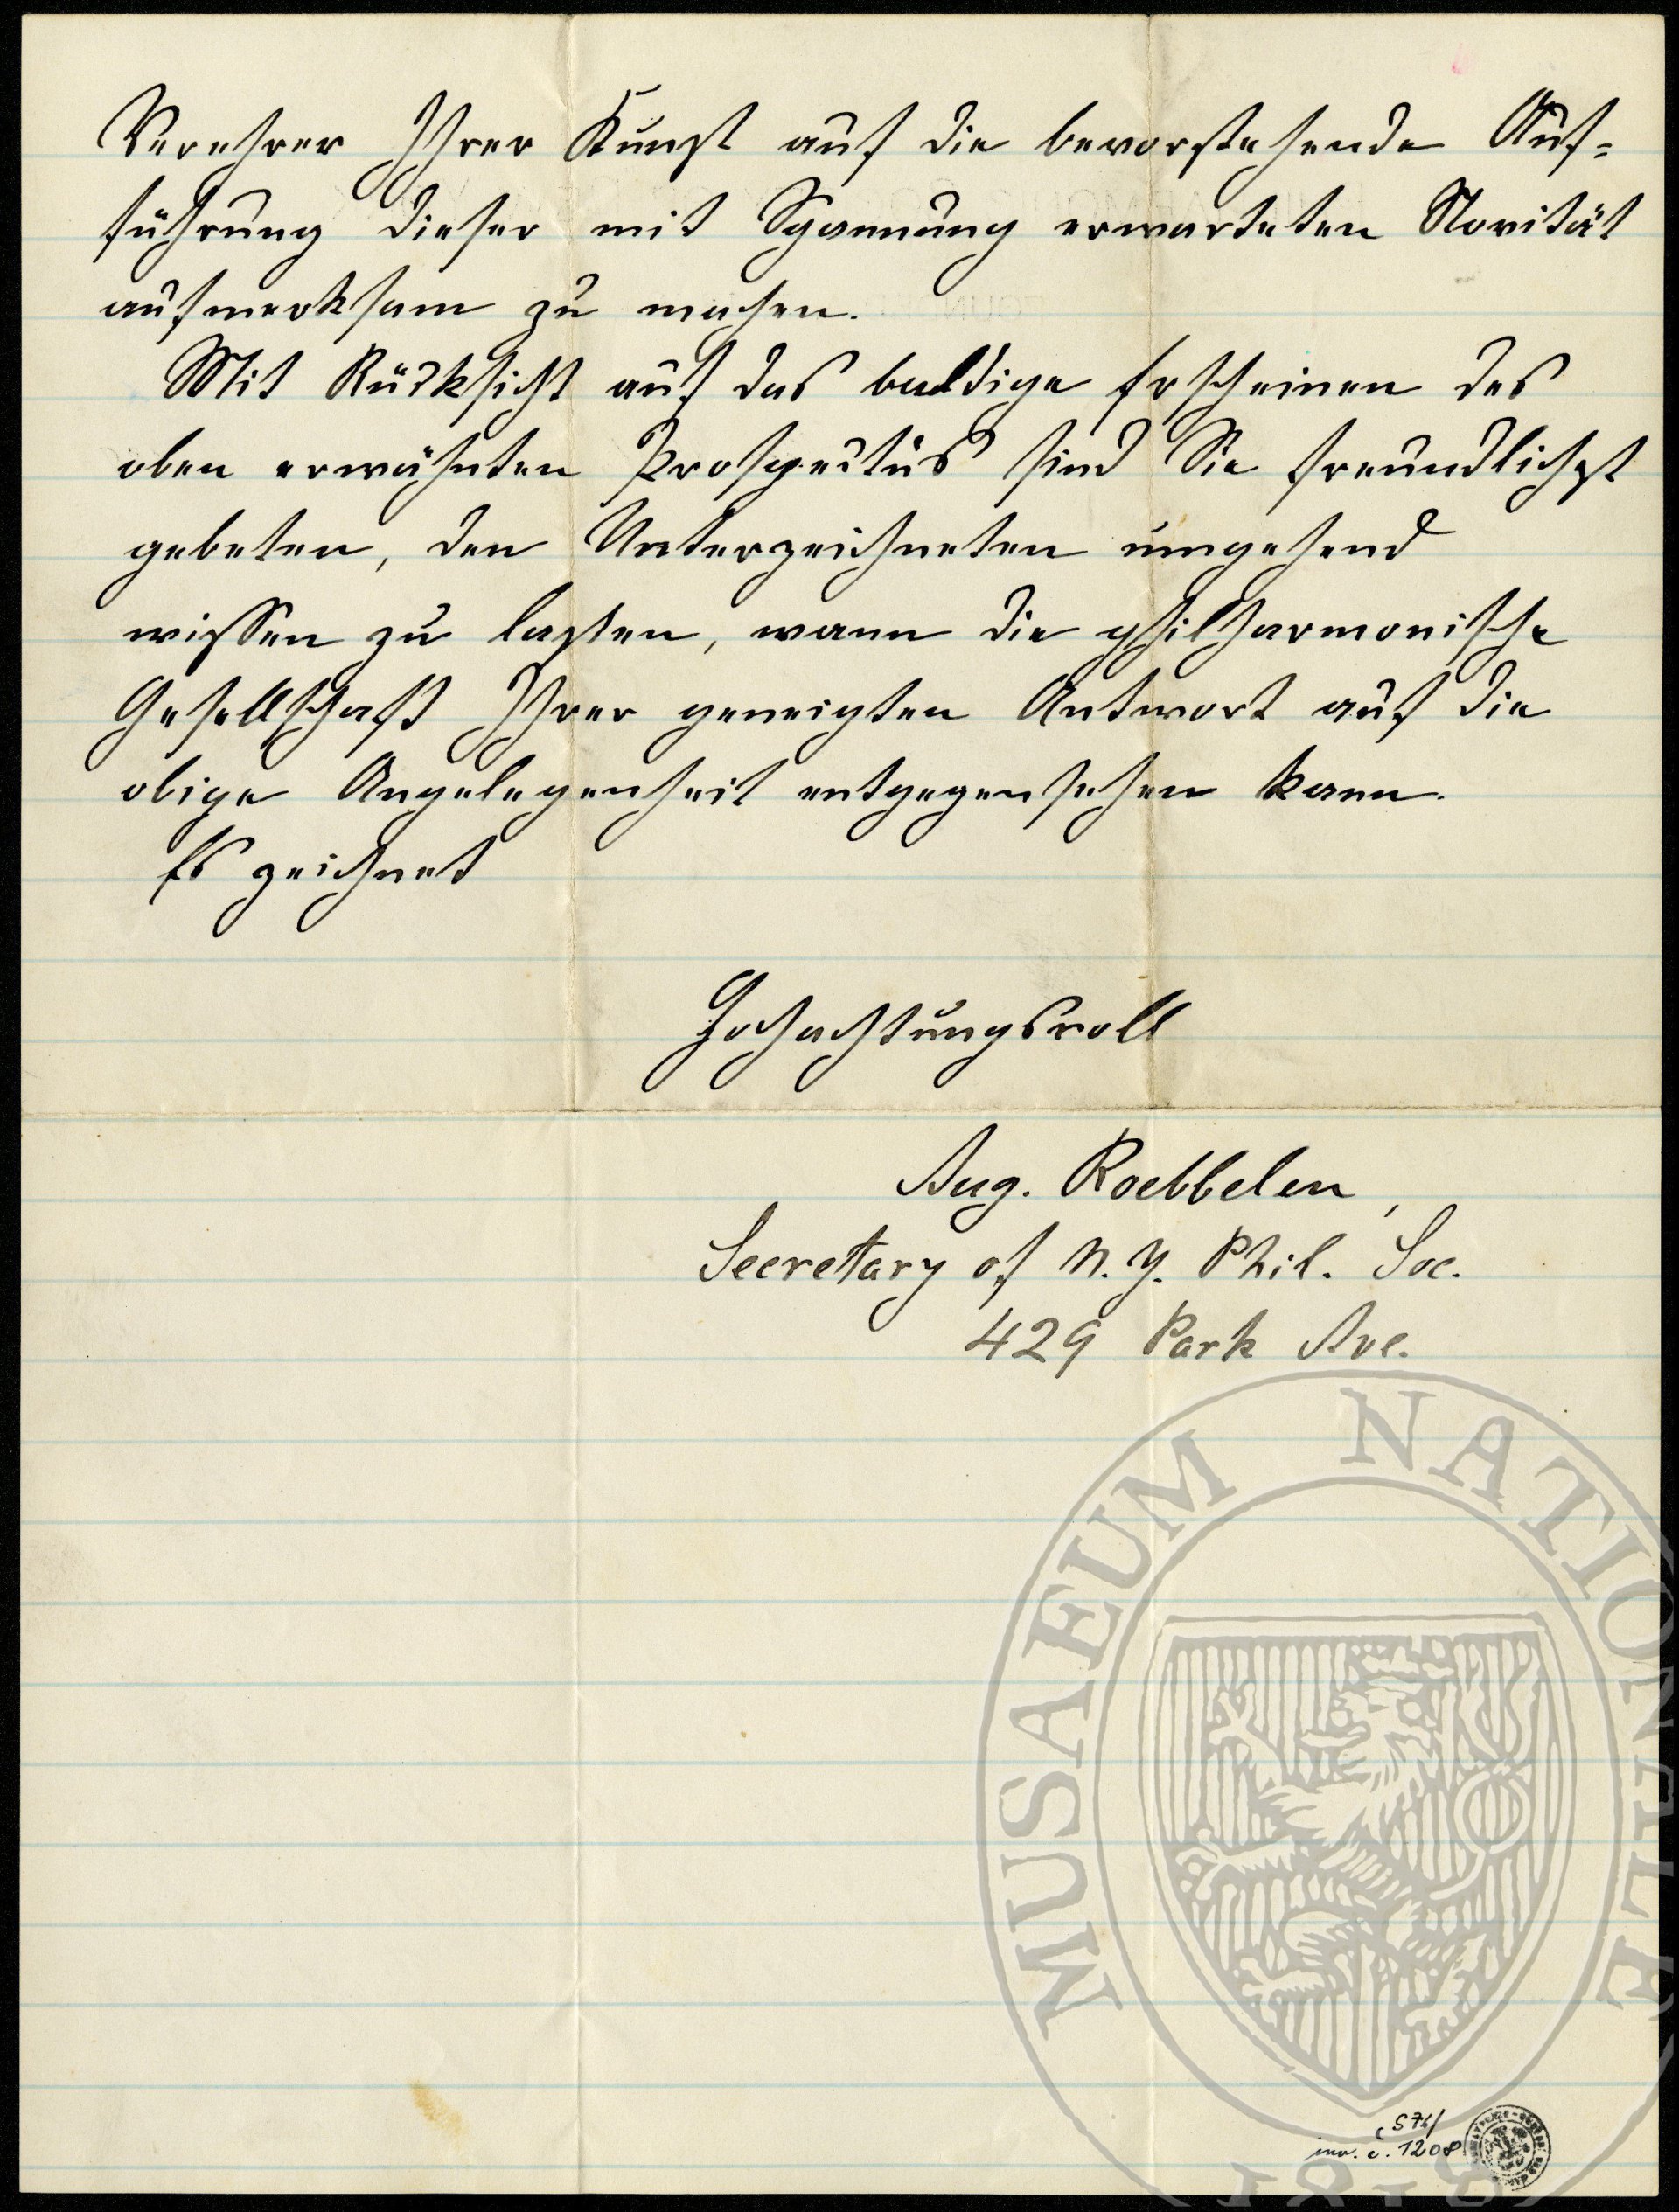 Verehrer Ihrer Kunst auf die bevorstehende Auf-
führung dieser mit Spannung erwarteten Novität
aufmerksam zu machen.
Mit Rücksicht auf das baldige Erscheinen des
oben erwähnten Prospectus sind Sie freundlichst
gebeten, den Unterzeichneten umgehend
wissen zu lassen, wann die philharmonische
Gesellschaft Ihrer geneigten Antwort auf die
obige Angelegenheit entgegensehen kann.
Es zeichnet
Hochachtungsvoll
Aug. Roebbelen,
Secretary of N. Y. Phil. Soc.
429 Park Ave.
MUSAEUM NATIONALE
1818
č S 76/
inv. č. 1208